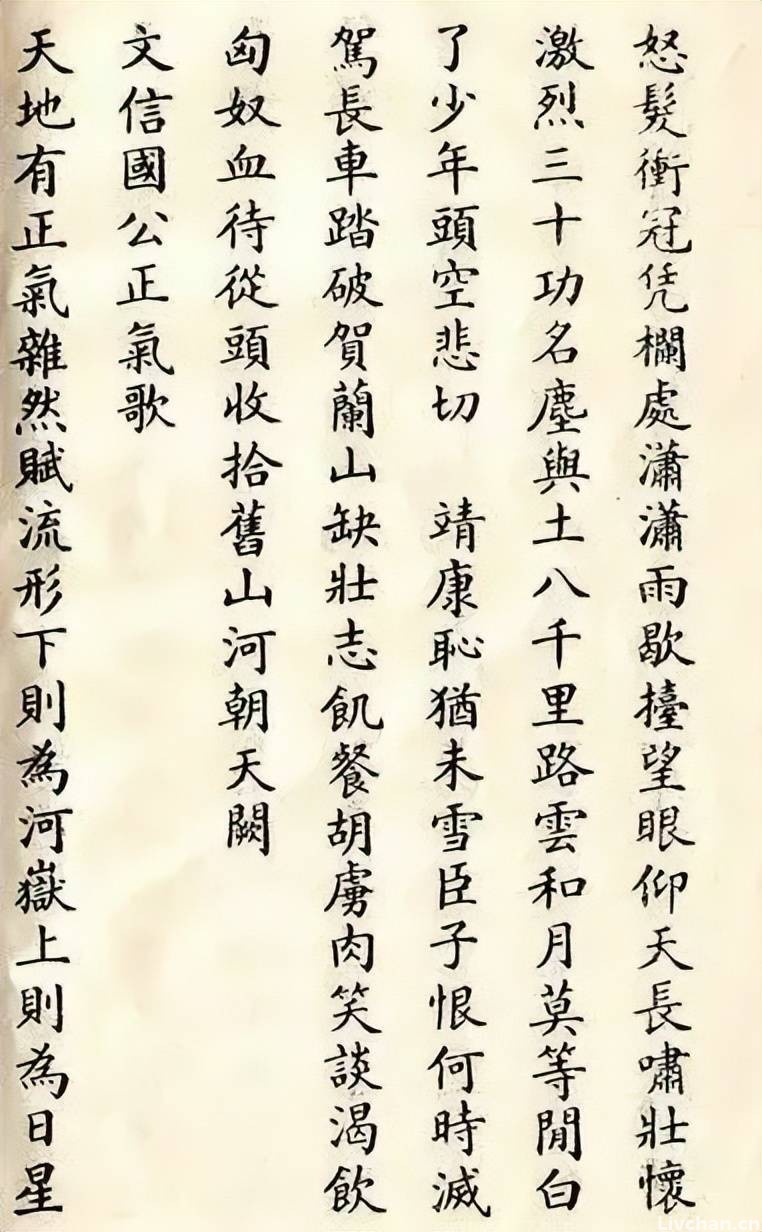 怒髮衝冠凭欄處瀟瀟雨歇擡望眼仰天長嘯壯懷
激烈三十功名塵與土八千里路雲和月莫等閒白
了少年頭空悲切 靖康恥猶未雪臣子恨何時滅
駕長車踏破賀蘭山缺壯志飢餐胡虜肉笑談渴飲
匈奴血待從頭收拾舊山河朝天闕
文信國公正氣歌
天地有正氣雜然賦流形下則為河嶽上則為日星
Livchan.cn